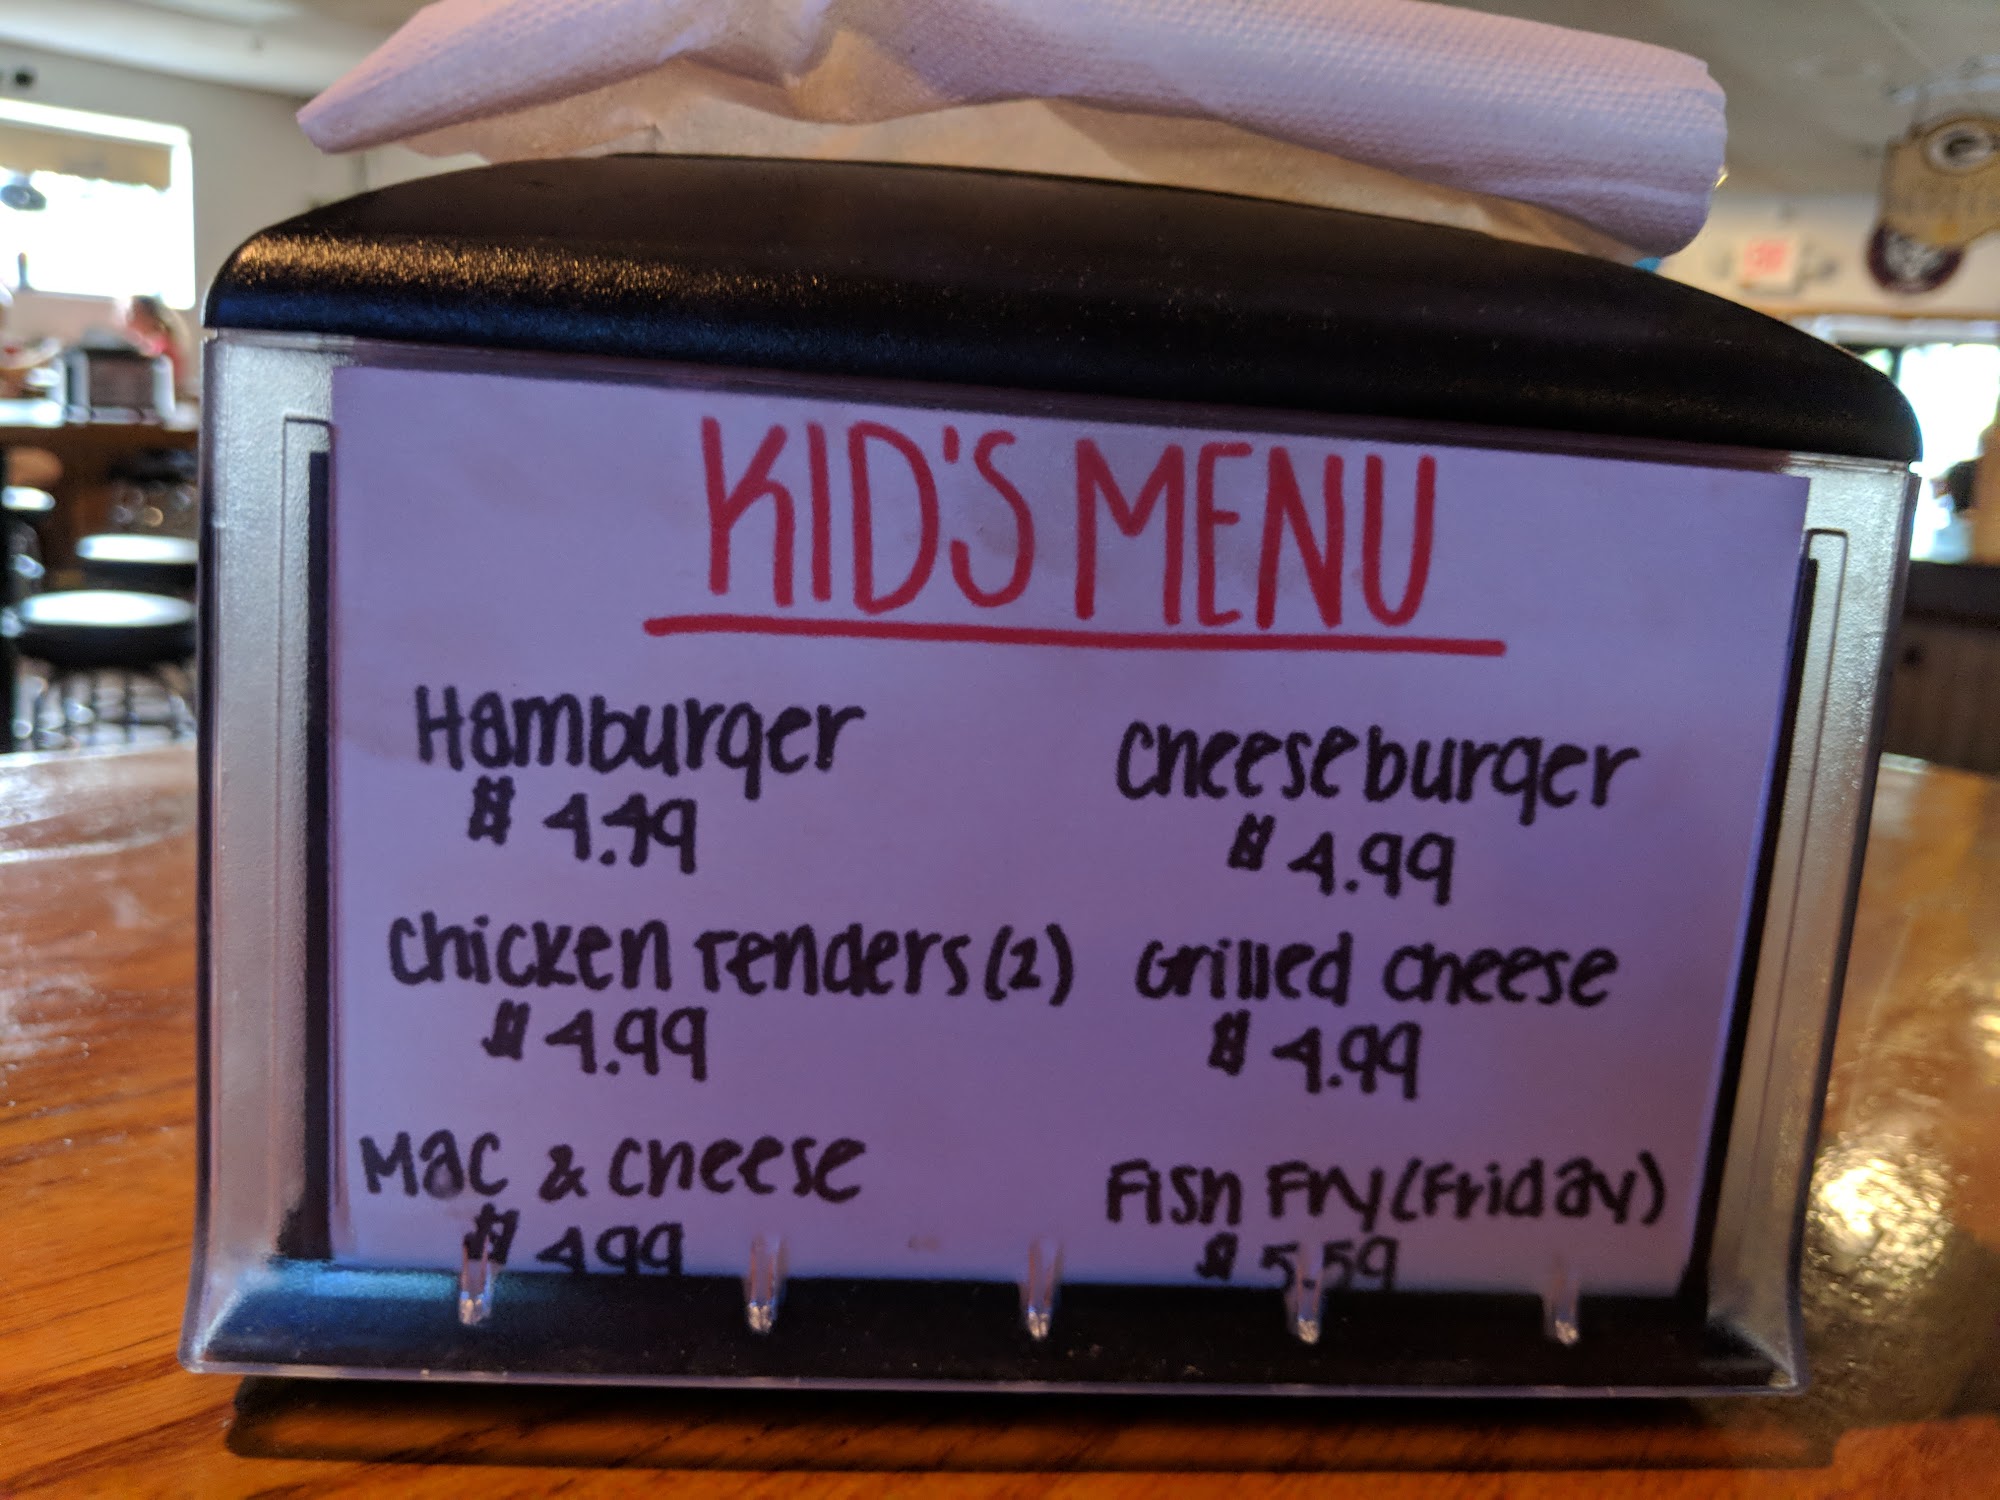 KID'S MENU
Hamburger
$ 4.49
Cheeseburger
$ 4.99
Chicken Tenders (2)
$ 4.99
Grilled Cheese
$ 4.99
Mac & Cheese
$ 4.99
Fish Fry (Friday)
$ 5.59